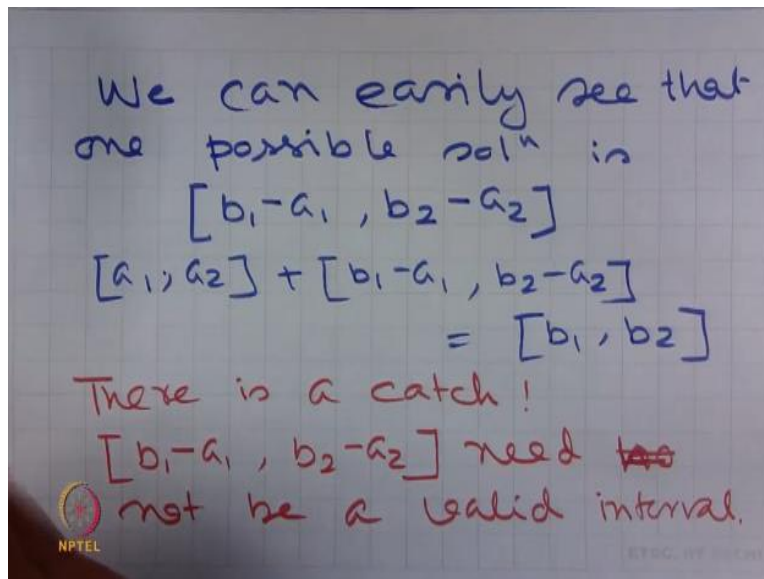 We can easily see that
one possible solⁿ is
[b₁-a₁, b₂-a₂]
[a₁, a₂] + [b₁-a₁, b₂-a₂]
= [b₁, b₂]
There is a catch!
[b₁-a₁, b₂-a₂] need
not be a valid interval.
NPTEL